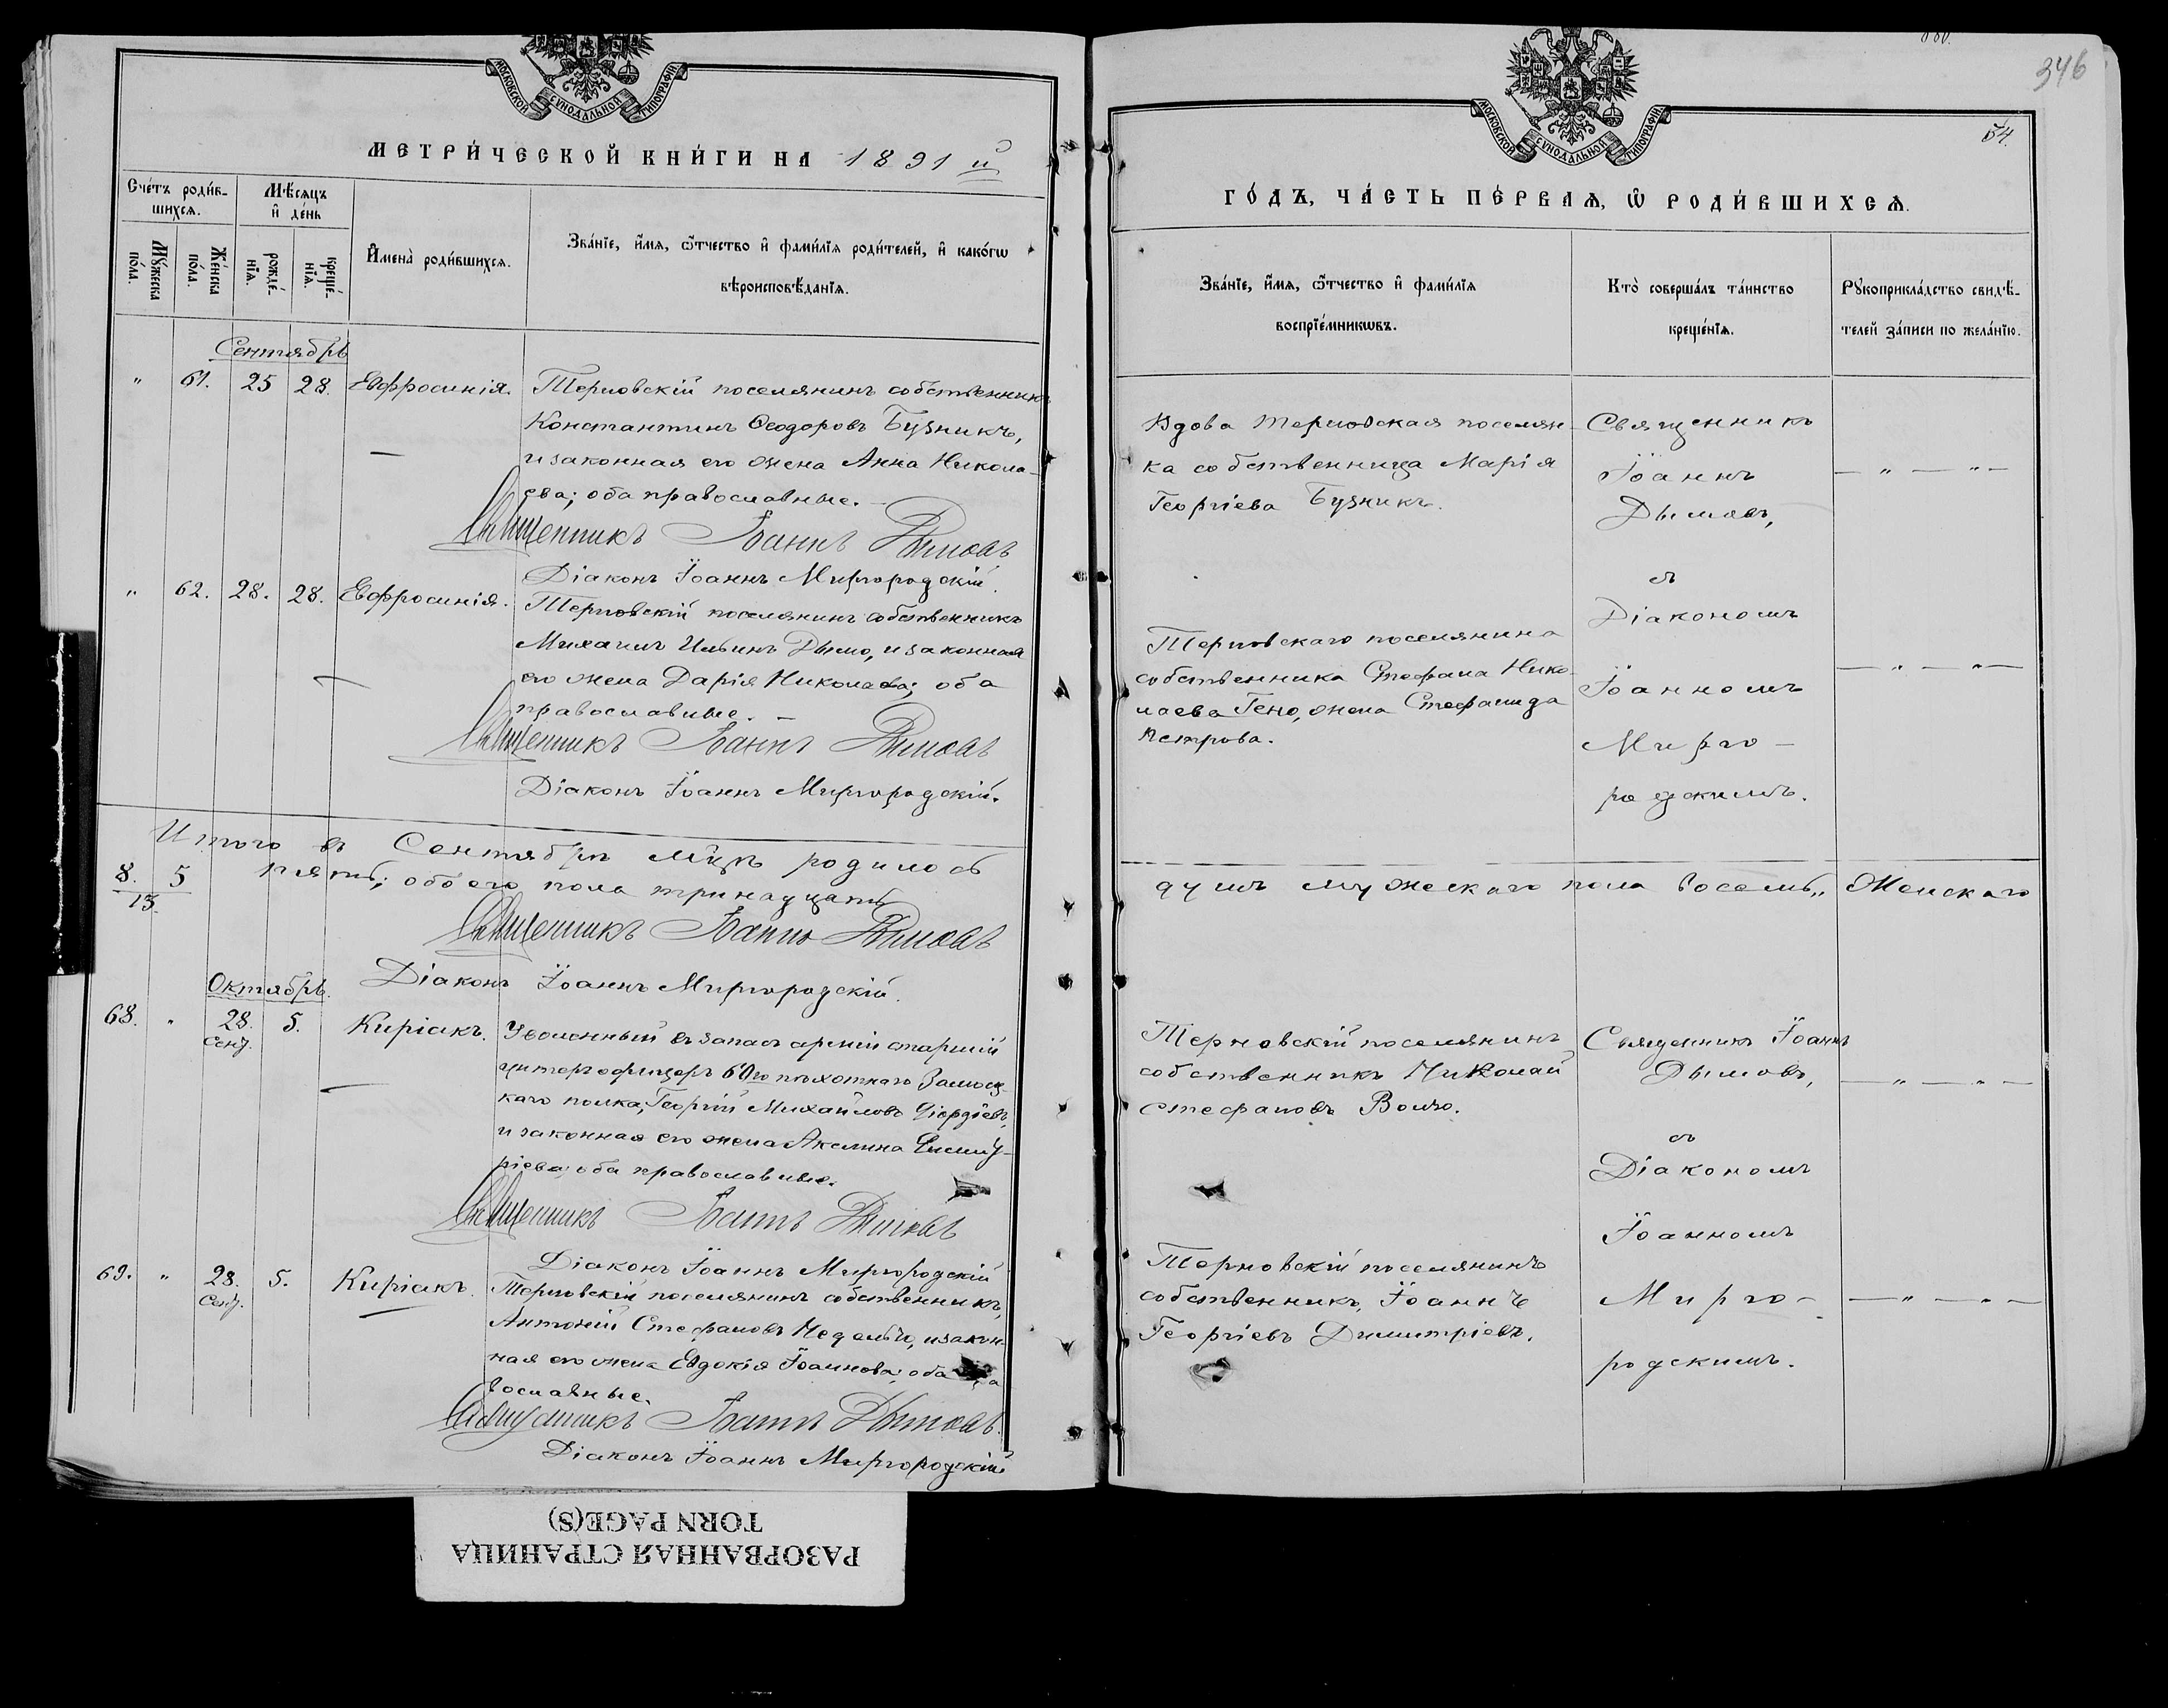 МОСКОВСКОЙ СѴНОДАЛЬНОЙ ТИПОГРАФІИ
МЕТРИ́ЧЕСКОЙ КНИ́ГИ НА 1891 й
Сче́тъ роди́в-
шихсѧ.
Мѣ́сѧцъ
и҆ де́нь
Мꙋ́жеска
по́ла.
Же́нска
по́ла.
рожде́-
нїѧ.
креще́-
нїѧ.
И҆мена̀ роди́вшихсѧ.
Зва́нїе, и҆́мѧ, ѻ҆́тчество и҆ фами́лїѧ роди́телей, и҆ како́гѡ
вѣроисповѣ́данїѧ.
Сентябрь
" 61. 25 28. Евфросинія. Терновскій поселянинъ собственникъ
Константинъ Ѳеодоровъ Бузникъ,
и законная его жена Анна Никола-
ева; оба православные.
Священникъ Іоаннъ Дымовъ
Діаконъ Іоаннъ Миргородскій.
" 62. 28. 28. Евфросинія. Терновскій поселянинъ собственникъ
Михаилъ Ильинъ Дымо, и законная
его жена Дарія Николаева; оба
православные. —
Священникъ Іоаннъ Дымовъ
Діаконъ Іоаннъ Миргородскій.
Итого въ Сентябрѣ мцѣ родилось
8. 5 пять; обоего пола тринадцать
13.
Священникъ Іоаннъ Дымовъ
Діаконъ Іоаннъ Миргородскій.
Октябрь.
68. " 28. 5. Киріакъ. Уволенный въ запасъ арміи старшій
Сент.
унтеръ офицеръ 60го пѣхотнаго Замосц-
каго полка, Георгій Михайловъ
и законная его жена Акилина
ріева; оба православные.
Священникъ Іоаннъ Дымовъ
Діаконъ Іоаннъ Миргородскій
69. " 28. 5. Киріакъ. Терновскій поселянинъ собственникъ,
Сент.
Антоній Стефановъ Недельчо, и закон-
ная его жена Евдокія Іоаннова; оба
вославные.
Священникъ Іоаннъ Дымовъ.
Діаконъ Іоаннъ Миргородскій
346
54.
МОСКОВСКОЙ СѴНОДАЛЬНОЙ ТИПОГРАФІИ
ГО́ДЪ, ЧА́СТЬ ПЕ́РВАѦ, Ѡ҆ РОДИ́ВШИХСѦ.
Зва́нїе, и҆́мѧ, ѻ҆́тчество и҆ фами́лїѧ
воспрїе́мникѡвъ.
Кто̀ соверша́лъ та́инство
креще́нїѧ.
Рꙋкоприкла́дство свидѣ́-
телей за́писи по жела́нїю.
Вдова Терновская поселян-
ка собственница Марія
Георгіева Бузникъ.
Священникъ
Іоаннъ
Дымовъ,
съ
Діакономъ
Іоанномъ
Мирго-
родскимъ.
— " — " —
Терновскаго поселянина
собственника Стефана Нико-
лаева Гено, жена Стефанида
Петрова.
— " — " —
душъ мужескаго пола восемь,, Женскаго
Терновскій поселянинъ
собственникъ Николай
Стефановъ Волчо.
Священникъ Іоаннъ
Дымовъ,
съ
Діакономъ
Іоанномъ
Мирго-
родскимъ.
— " — " —
Терновскій поселянинъ
собственникъ, Іоаннъ
Георгіевъ Димитріевъ.
— " — " —
РАЗОРВАННАЯ СТРАНИЦА
TORN PAGE(S)